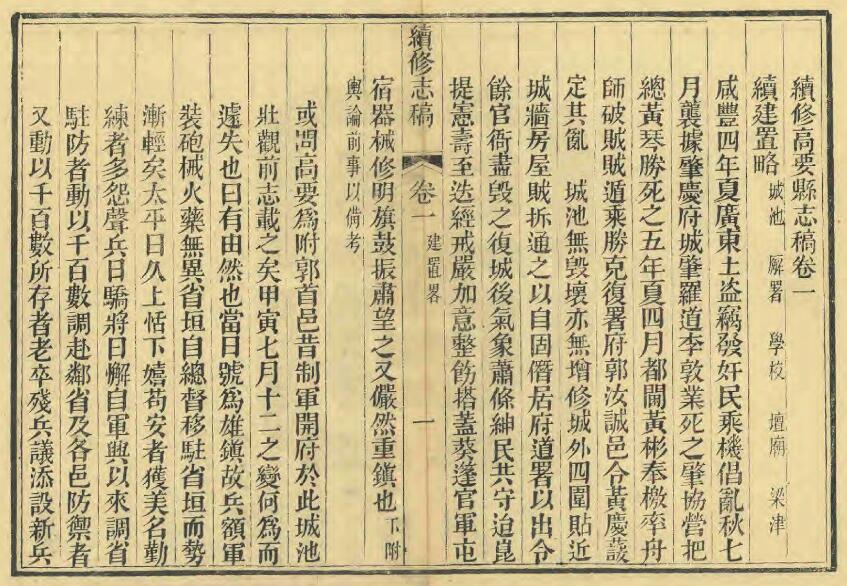 續修高要縣志稿卷一
續建置略 城池 廨署 學校 壇廟 梁津
咸豐四年夏廣東土盗竊發奸民乘機倡亂秋七
月襲據肇慶府城肇羅道李敦業死之肇協營把
總黃琴勝死之五年夏四月都閫黃彬奉檄率舟
師破賊賊遁乘勝克復署府郭汝誠邑令黃慶蕿
定其亂 城池無毀壞亦無增修城外四圍貼近
城牆房屋賊拆通之以自固僭居府道署以出令
餘官衙盡毀之復城後氣象蕭條紳民共守迨崑
提憲壽至迭經戒嚴加意整飭搭蓋葵蓬官軍屯
續修志稿 卷一 建置畧 一
宿器械修明旗鼓振肅望之又儼然重鎮也 下附
輿論前事以備考
或問高要爲附郭首邑昔制軍開府於此城池
壯觀前志載之矣甲寅七月十二之變何爲而
遽失也曰有由然也當日號爲雄鎮故兵額軍
裝砲械火藥無異省垣自總督移駐省垣而勢
漸輕矣太平日久上恬下嬉苟安者獲美名勤
練者多怨聲兵日驕將日懈自軍興以來調省
駐防者動以千百數調赴鄰省及各邑防禦者
又動以千百數所存者老卒殘兵議添設新兵